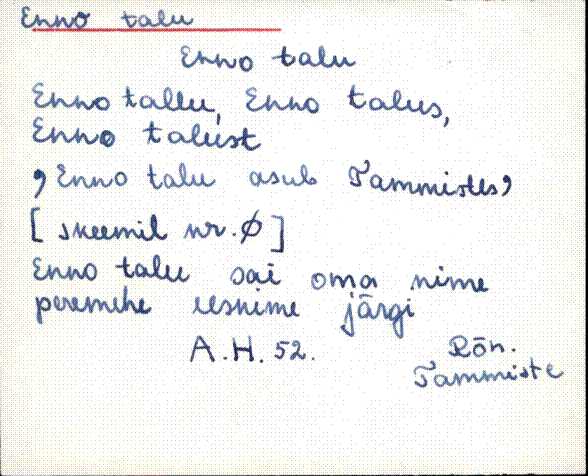 Enno talu
Enno talu
Enno tallu, Enno talus,
Enno talust
, Enno talu asub Tammistes,
[skeemil nr. Ø]
Enno talu sai oma nime
peremehe eesnime järgi
A.H. 52. Rõn.
Tammiste